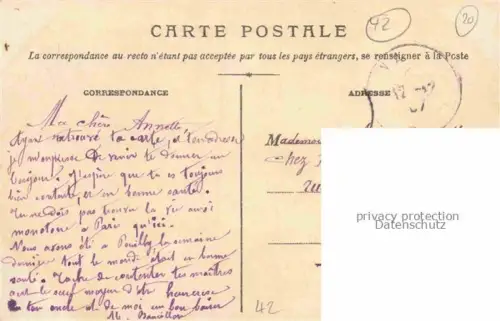 CARTE POSTALE
42
20
La correspondance au recto n'étant pas acceptée par tous les pays étrangers, se renseigner à la Poste
CORRESPONDANCE
ADRESSE
17 -12
07
Ma chère Annette
Ayant retrouvé ta carte, et ton adresse
je m'empresse de venir te donner un
bonjour. J'espère que tu es toujours
bien contente, et en bonne santé.
Tu ne dois pas trouver la vie aussi
monotone à Paris qu'ici.
Nous avons été à Pouilly la semaine
dernière tout le monde était en bonne
santé. Tache de contenter tes maîtres
c'est le seul moyen d'être heureuse
ton oncle et de moi un bon baiser
M.
Mademoi
chez
privacy protection
Datenschutz
42